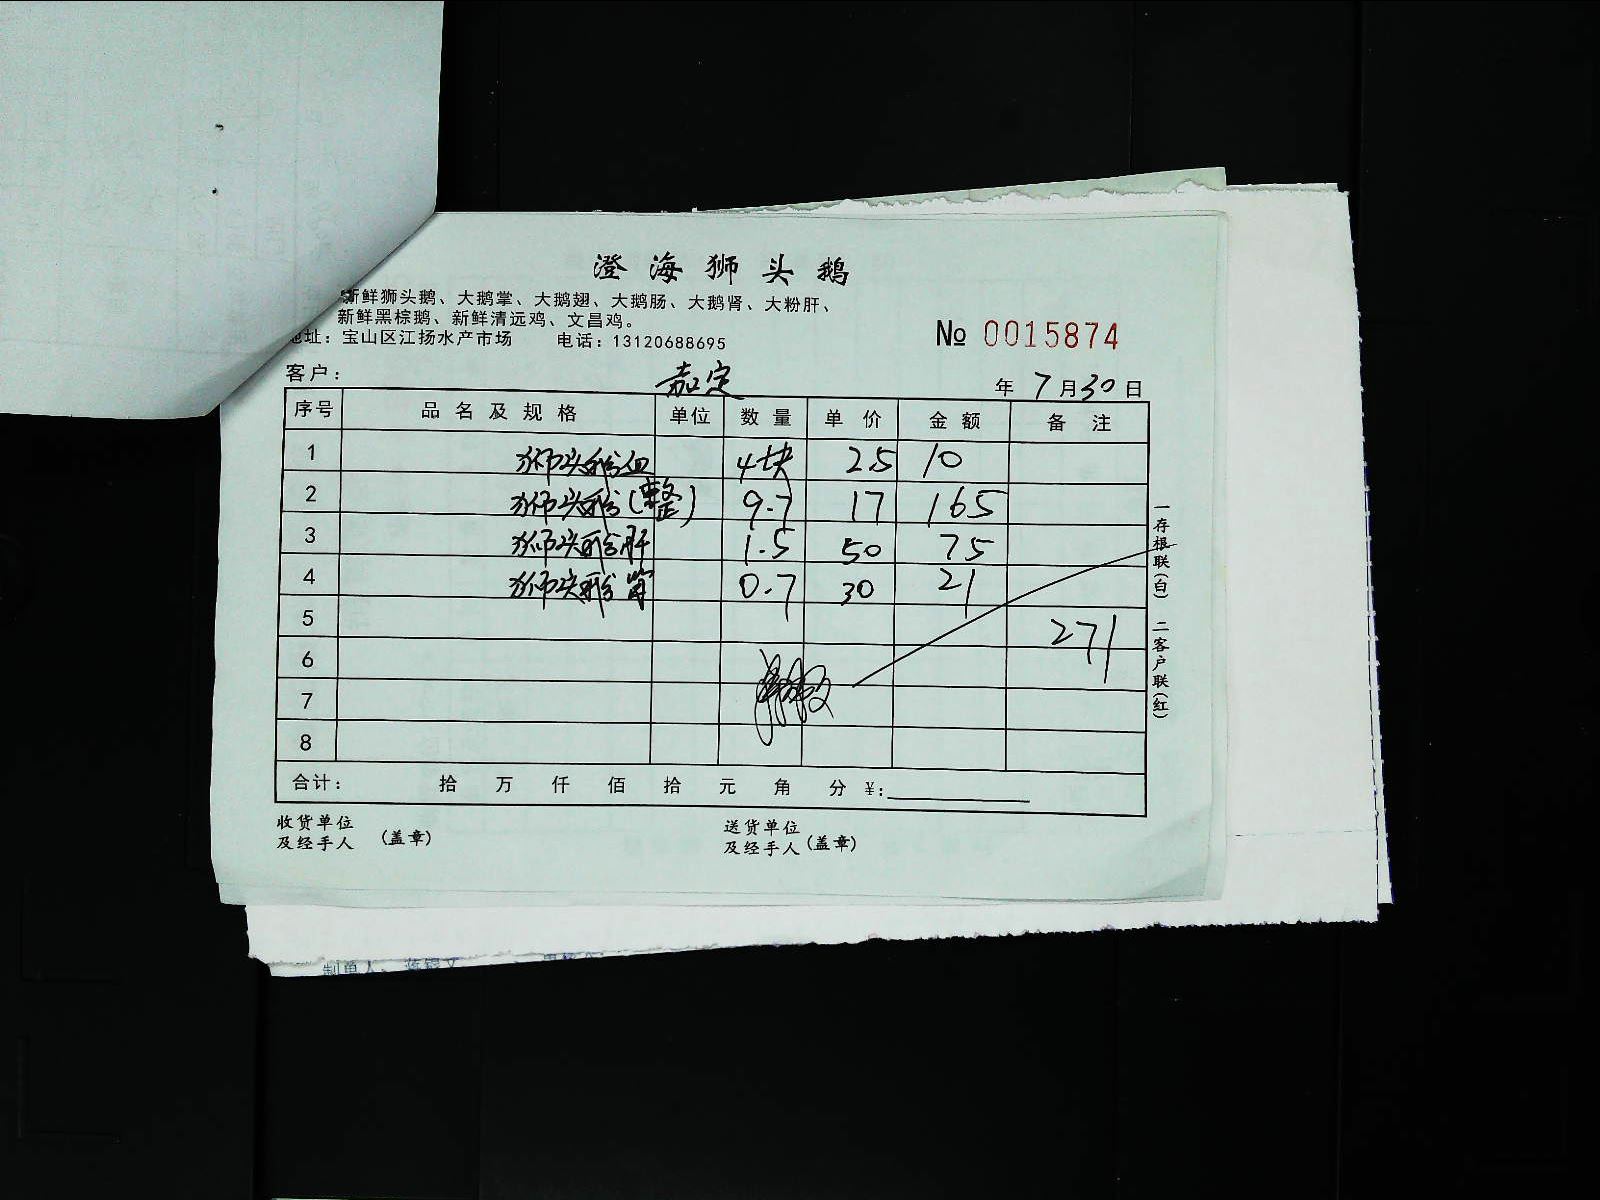 澄海狮头鹅
新鲜狮头鹅、大鹅掌、大鹅翅、大鹅肠、大鹅肾、大粉肝、
新鲜黑棕鹅、新鲜清远鸡、文昌鸡。
地址：宝山区江扬水产市场 电话：13120688695
№ 0015874
客户： 嘉定 年 7月30日
序号 品名及规格 单位 数量 单价 金额 备注
1 狮头鹅血 4块 2.5 10
2 狮头鹅(整) 9.7 17 165
3 狮头鹅肝 1.5 50 75
4 狮头鹅胃 0.7 30 21
5 271
6
7
8
合计： 拾 万 仟 佰 拾 元 角 分 ￥：
收货单位
及经手人 (盖章)
送货单位
及经手人 (盖章)
一存根联(白) 二客户联(红)
制单人：